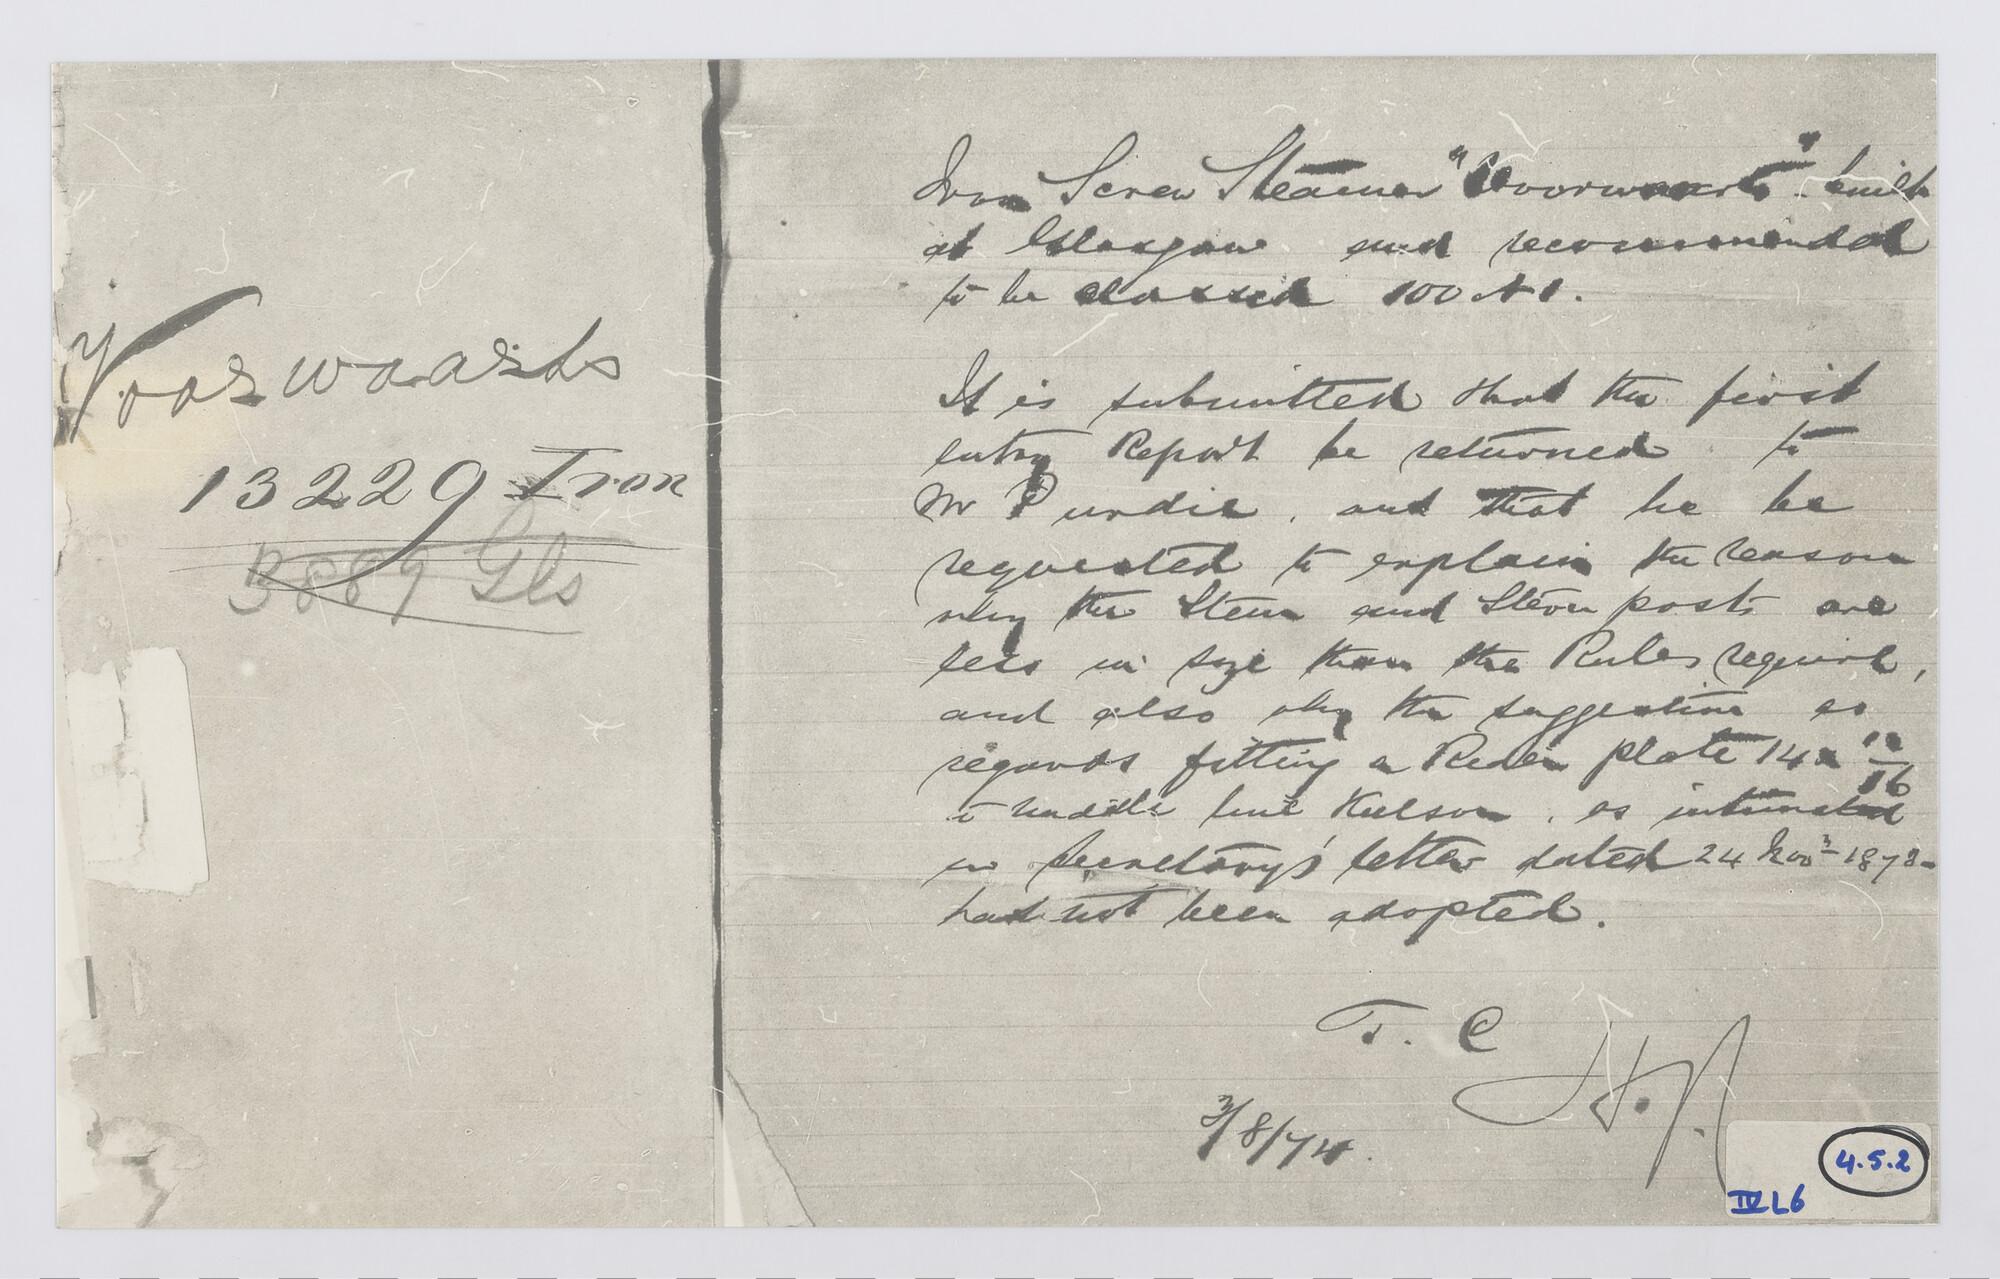 Voorwaarts
13229 Iron
3889 Gls
Iron Screw Steamer "Voorwaarts" built
at Glasgow and recommended
to be classed 100 A1.
It is submitted that the first
entry Report be returned to
Mr Purdie, and that he be
requested to explain the reason
why the Stem and Stern posts are
less in size than the Rules require,
and also why the suggestion as
regards fitting a Rider plate 14 x 12/16
to middle line Keelson, as intimated
in Secretary's letter dated 24 Novr 1873
had not been adopted.
T. C
3/8/74.
4.5.2
IV L6